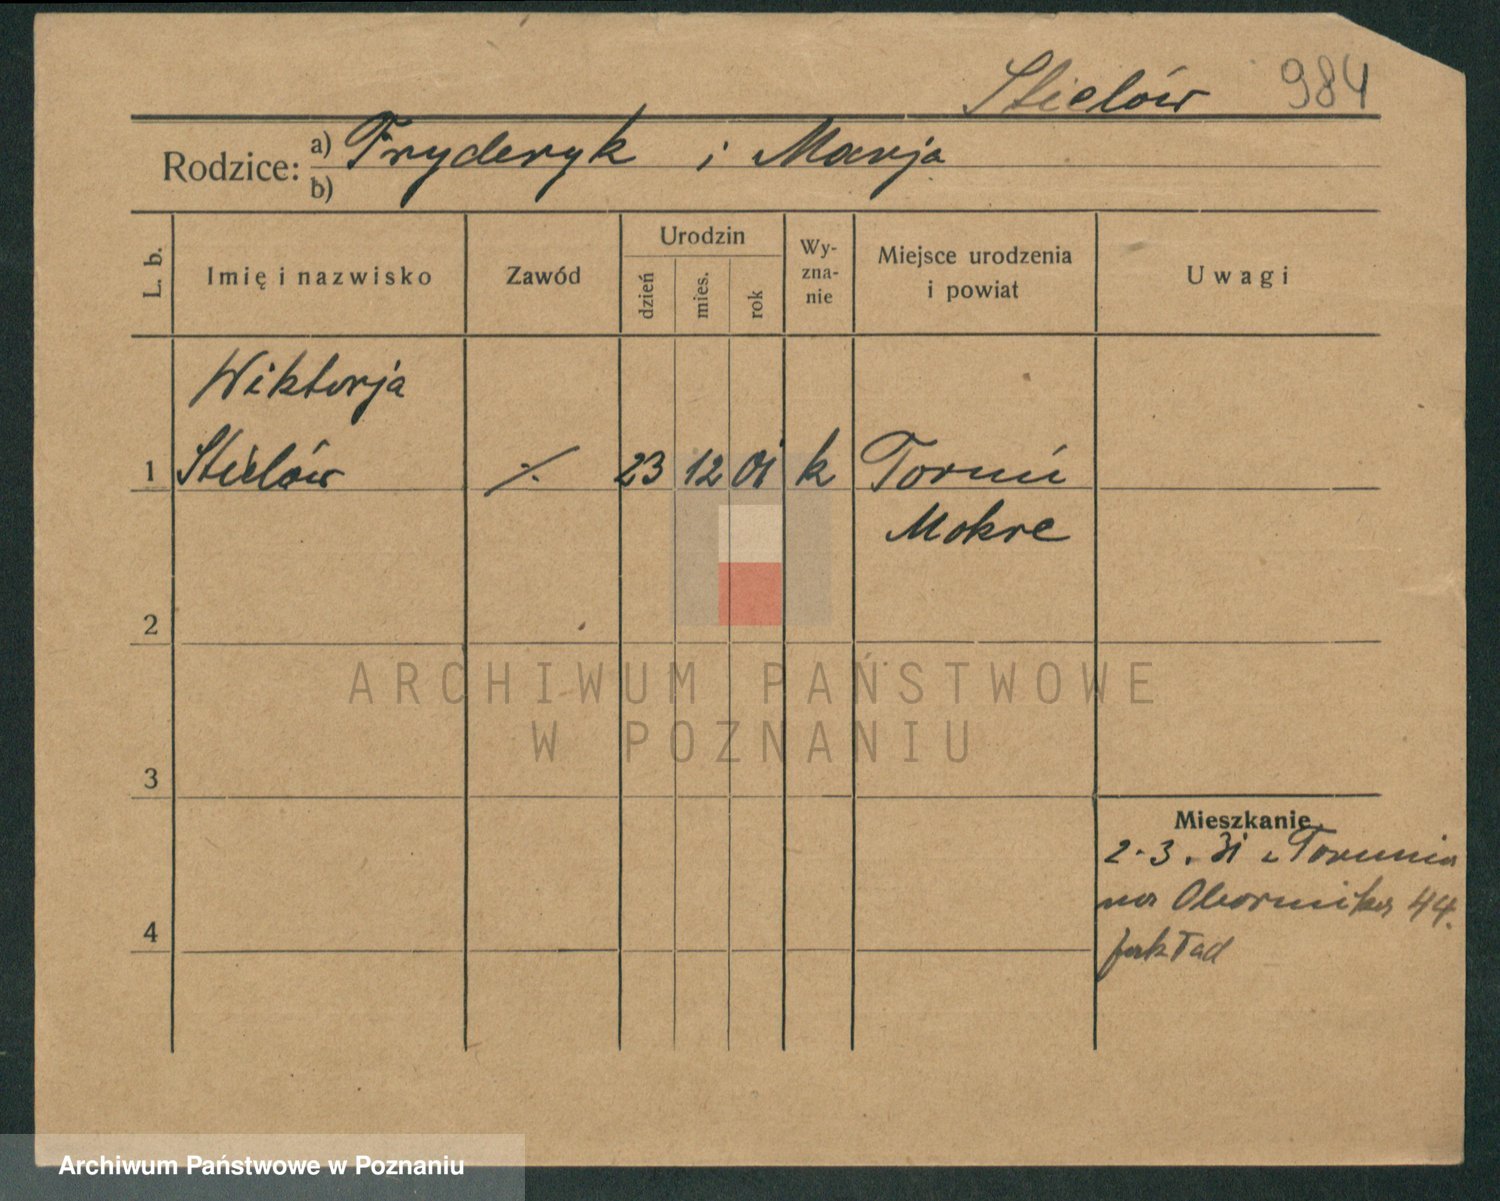 Stielów 984
Rodzice: a) Fryderyk i Marja
b)
L. b. Imię i nazwisko Zawód Urodzin dzień mies. rok Wy-zna-nie Miejsce urodzenia i powiat Uwagi
Wiktorja
1 Stielów ·/· 23 12 01 k Toruń
Mokre
2
ARCHIWUM PAŃSTWOWE
W POZNANIU
3
Mieszkanie
2-3. 31 z Torunia
na Obornika 44.
4 zakład
Archiwum Państwowe w Poznaniu